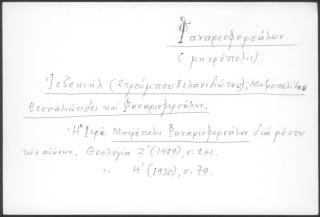 Φαναριοφερσάλων
(μητρόπολις).
Ἰεζεκιήλ (Στρούμπου Βελανιδιώτου), Μητροπολίτου
Θεσσαλιώτιδος καί Φαναριοφερσάλων.
Ἡ Ἱερά Μητρόπολις Φαναριοφερσάλων διά μέσου
τῶν αἰώνων. Θεολογία Ζ΄ (1929), σ. 241.
" Η΄ (1930), σ. 79.